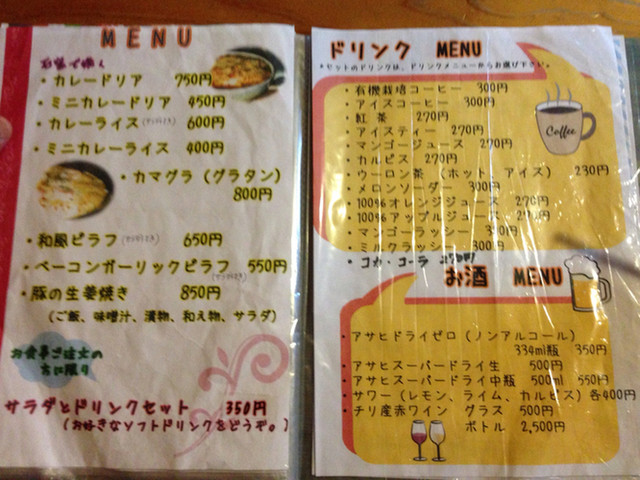 MENU
・カレードリア 750円
・ミニカレードリア 450円
・カレーライス 600円
・ミニカレーライス 400円
・カマグラ(グラタン)
800円
・和風ピラフ 650円
・ベーコンガーリックピラフ 550円
・豚の生姜焼き 850円
(ご飯、味噌汁、漬物、和え物、サラダ)
お食事ご注文の
方に限り
サラダとドリンクセット 350円
(お好きなソフトドリンクをどうぞ。)
ドリンク MENU
*セットのドリンクは、ドリンクメニューからお選び下さい。
・有機栽培コーヒー 300円
・アイスコーヒー 300円
・紅茶 270円
・アイスティー 270円
・マンゴージュース 270円
・カルピス 270円
・ウーロン茶 (ホット、アイス) 230円
・メロンソーダー 300円
・100%オレンジジュース 270円
・100%アップルジュース 270円
・マンゴーラッシー 350円
・ミルクラッシー 300円
・コカ・コーラ 270円
Coffee
お酒 MENU
・アサヒドライゼロ(ノンアルコール)
334ml瓶 350円
・アサヒスーパードライ生 500円
・アサヒスーパードライ中瓶 500ml 550円
・サワー(レモン、ライム、カルピス)各400円
・チリ産赤ワイン グラス 500円
ボトル 2,500円